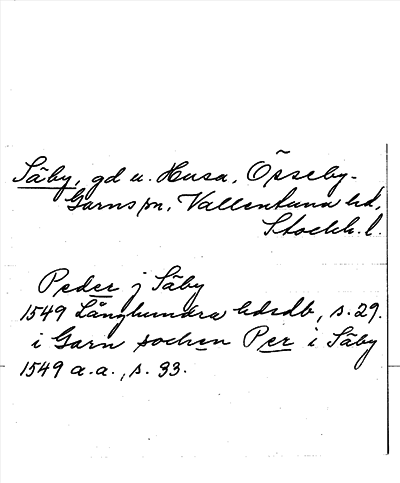 Säby, gd u. Husa, Össeby-
Garns sn, Vallentuna hd,
Stockh. l.
Peder j Säby
1549 Långhundra hdsdb, s. 29.
i Garn sochen Per i Säby
1549 a.a., s. 33.